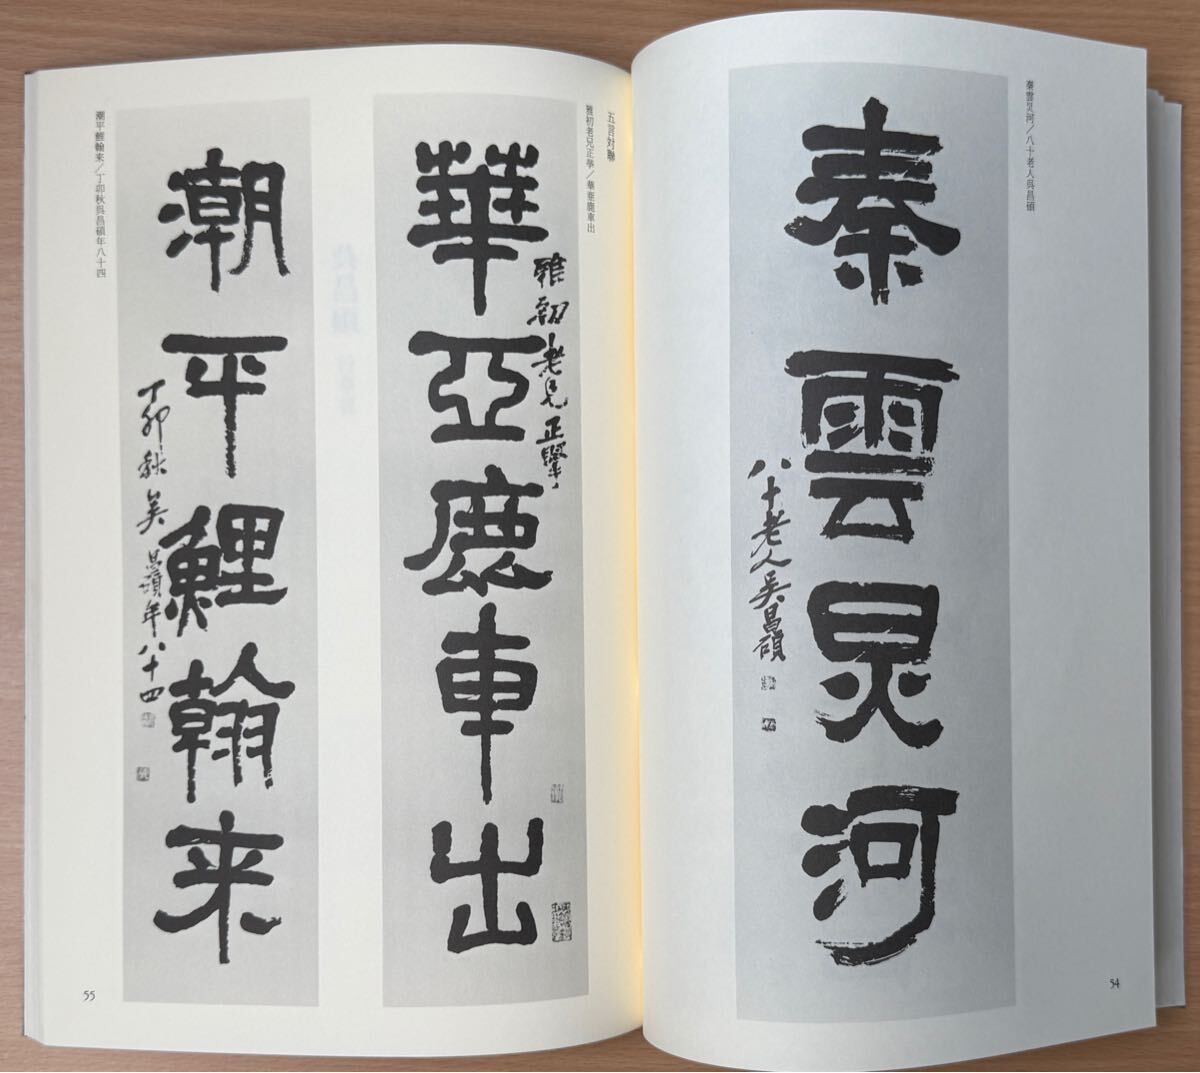 秦雲炅河／八十老人吳昌碩
秦雲炅河
八十老人吳昌碩
54
五言対聯
雅初老兄正學／華亞鹿車出
雅初老兄正學
華亞鹿車出
潮平鯉翰来
丁卯秋吳昌碩年八十四
潮平鯉翰来／丁卯秋吳昌碩年八十四
55